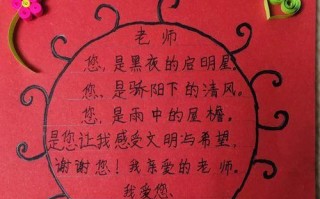 老师
您,是黑夜的启明星。
您、是骄阳下的清风。
您,是雨中的屋檐。
是您让我感受文明与希望,
谢谢您!我亲爱的老师。
我爱您、